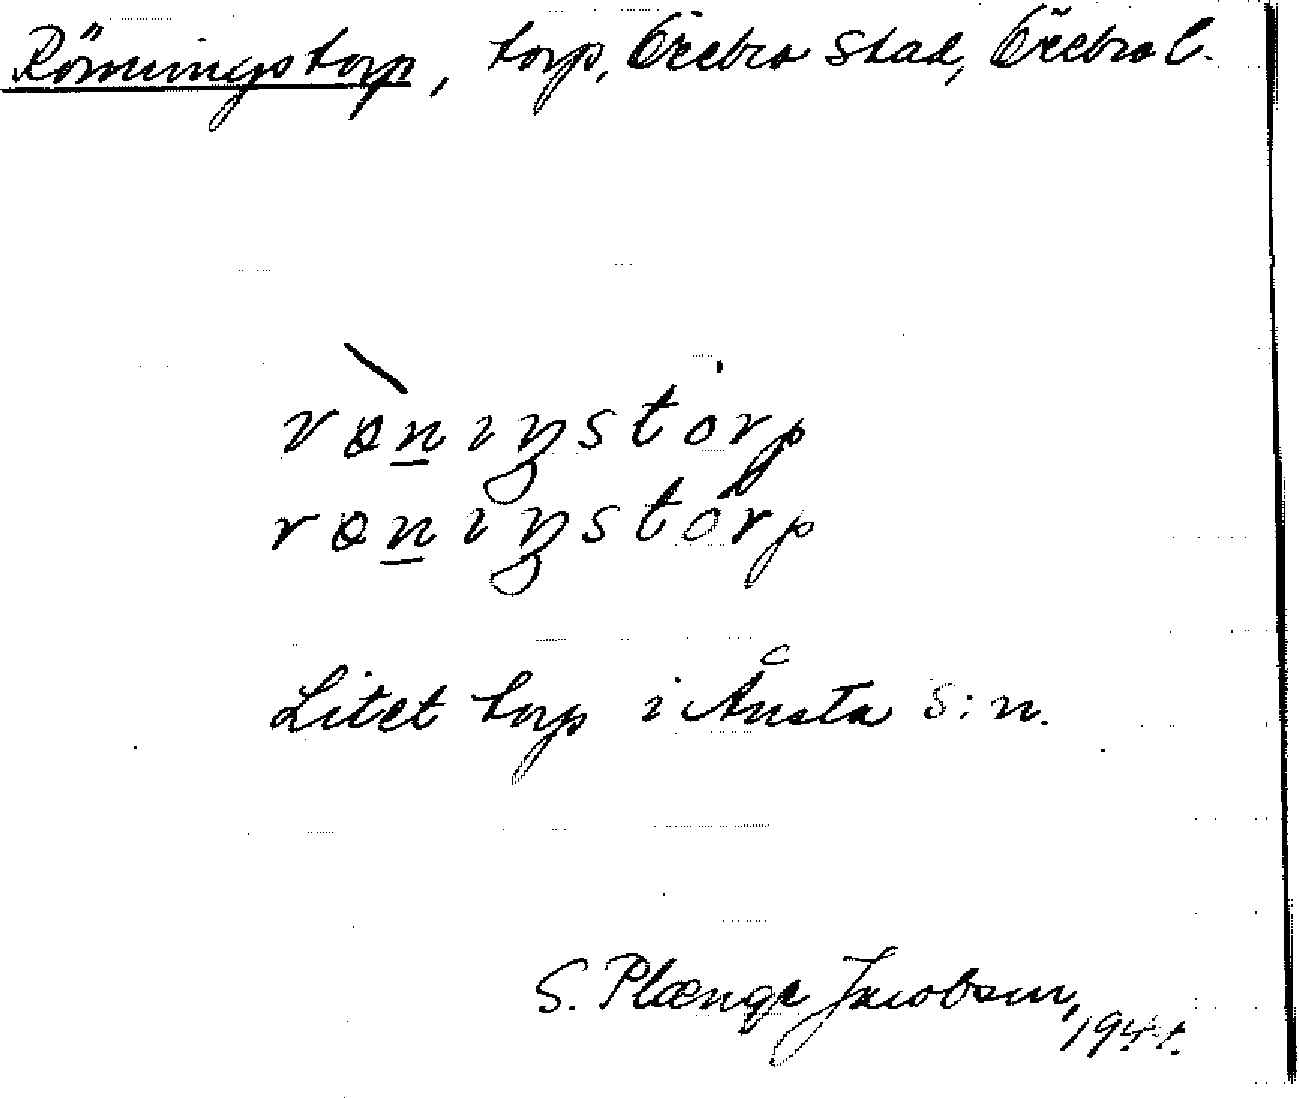 Rönningstorp, torp, Örebro stad, Örebro l.
rɵnıŋstorp
rɵnıŋstorp
Litet torp i Ånsta s:n.
S. Plænge Jacobson,